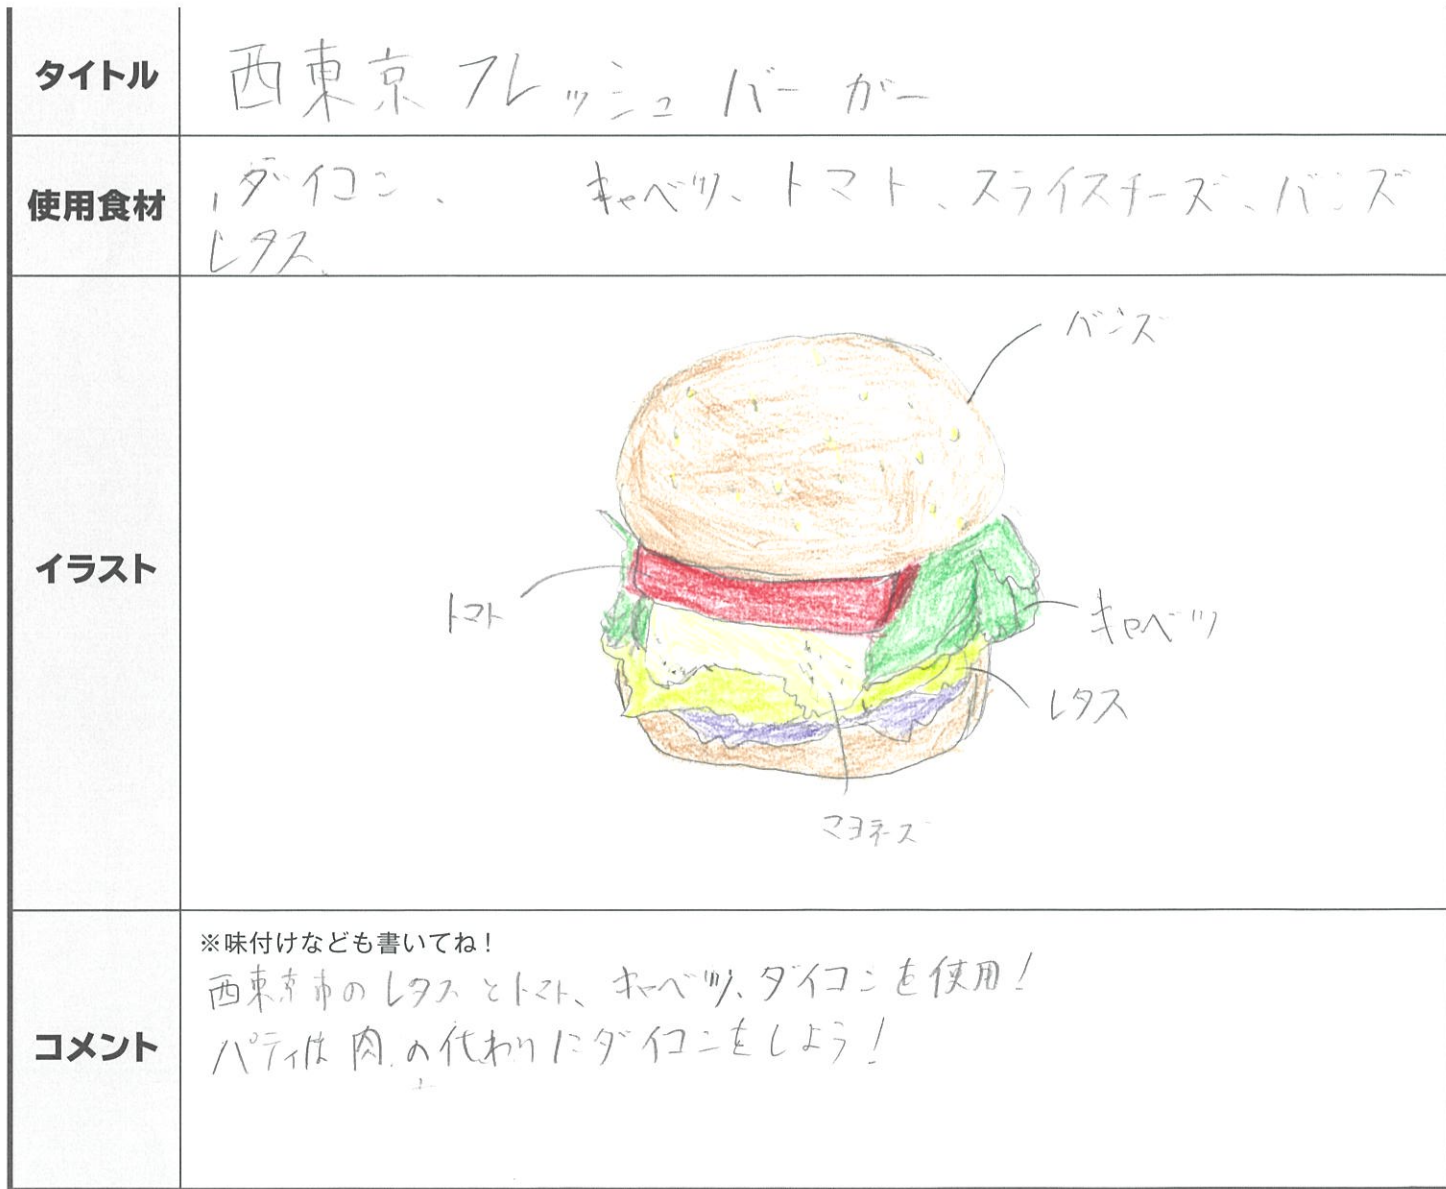 タイトル
西東京フレッシュバーガー
使用食材
ダイコン、 キャベツ、トマト、スライスチーズ、バンズ
レタス、
イラスト
バンズ
トマト
キャベツ
レタス
マヨネーズ
コメント
※味付けなども書いてね！
西東京市のレタスとトマト、キャベツ、ダイコンを使用！
パティは肉の代わりにダイコンをしよう！